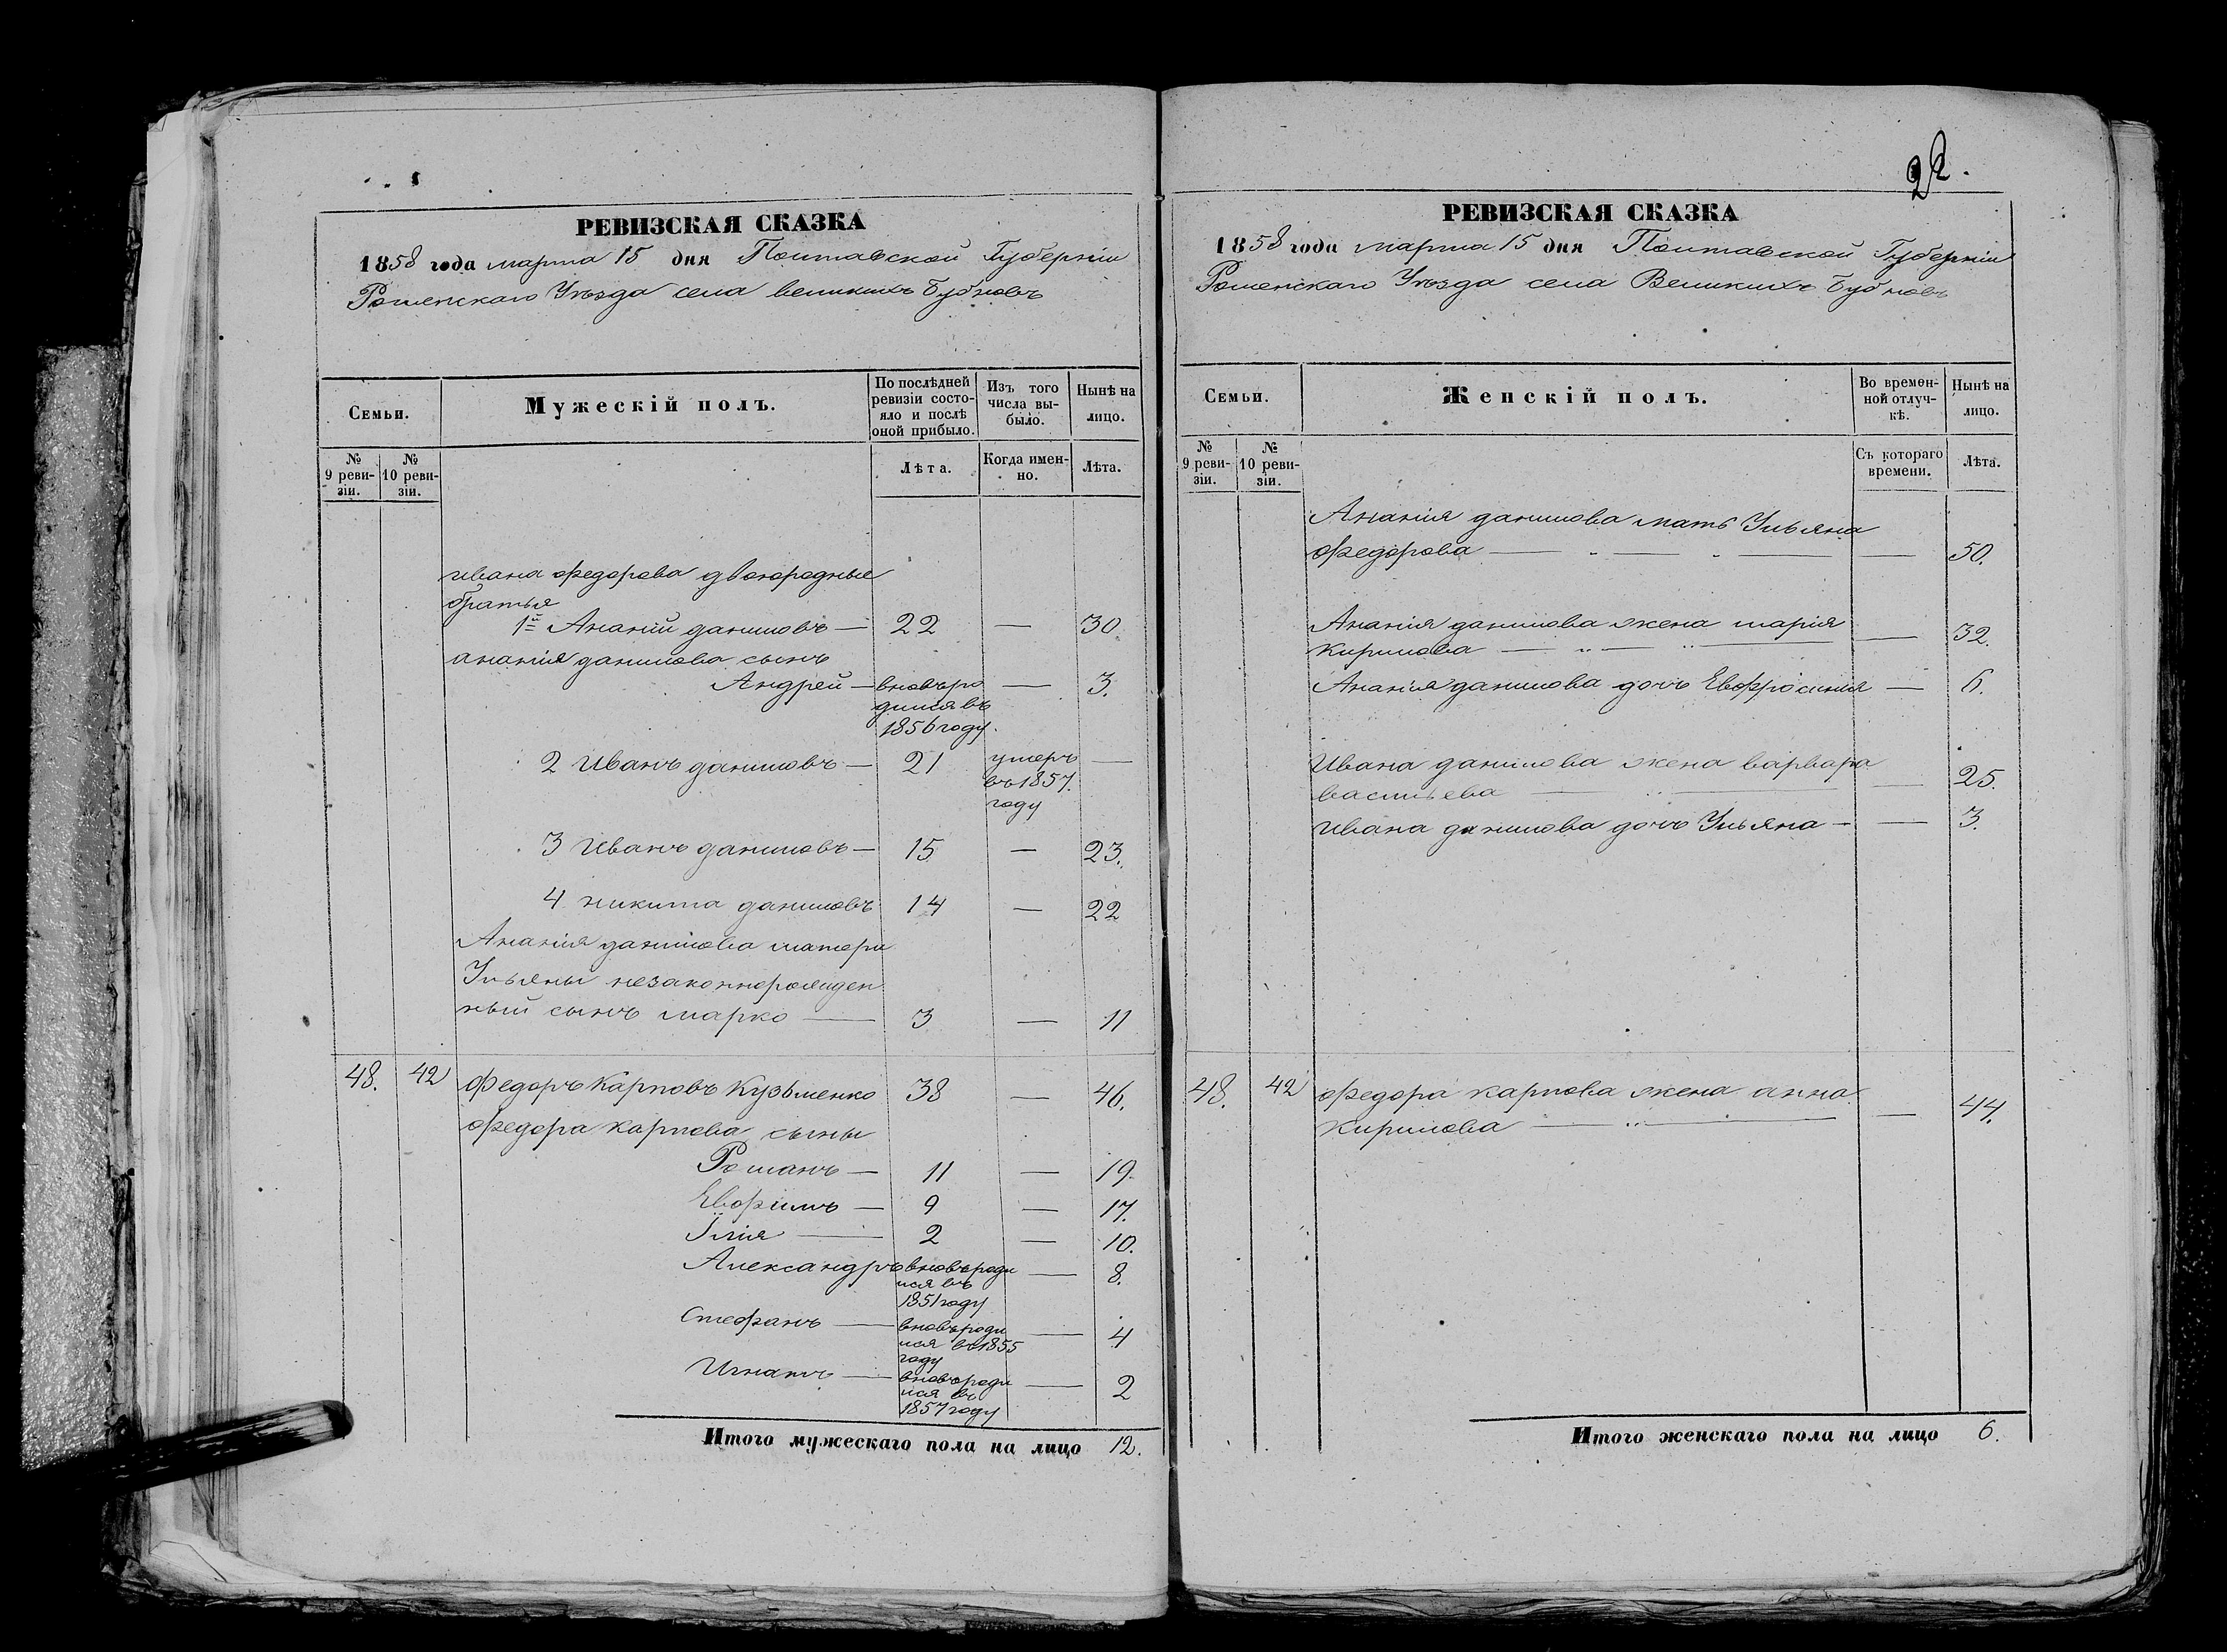 22.
РЕВИЗСКАЯ СКАЗКА
1858 года марта 15 дня Полтавской Губерніи
Роменскаго Уѣзда села великихъ Бубновъ
Семьи.
Мужескій полъ.
По послѣдней ревизіи состояло и послѣ оной прибыло.
Изъ того числа выбыло.
Нынѣ на лицо.
№ 9 ревизіи.
№ 10 ревизіи.
Лѣта.
Когда именно.
Лѣта.
ивана федорова двоюродные
братья
1й Ананій даниловъ — 22 — 30
анания данилова сынъ
Андрей — вновь ро — 3.
дился въ
1856 году.
2 Иванъ даниловъ — 21 умеръ —
въ 1857.
году
3 Иванъ даниловъ — 15 — 23.
4 никита даниловъ 14 — 22
Ананія данилова матери
Ульяны незаконнорожден
ный сынъ марко — 3 — 11
48. 42 федоръ Карповъ Кузьменко 38 — 46.
федора карпова сыны
Романъ — 11 — 19.
Евфимъ — 9 — 17.
Илія — 2 — 10.
Александръ вновь роди — 8.
лся въ
1851 году
Стефанъ — вновь роди — 4
лся въ 1855
году
Игнатъ — вновь роди — 2
лся въ
1857 году
Итого мужескаго пола на лицо 12.
РЕВИЗСКАЯ СКАЗКА
1858 года марта 15 дня Полтавской Губерніи
Роменскаго Уѣзда села Великихъ Бубновъ
Семьи.
Женскій полъ.
Во временной отлучкѣ.
Нынѣ на лицо.
№ 9 ревизіи.
№ 10 ревизіи.
Съ котораго времени.
Лѣта.
Ананія данилова мать Ульяна
федорова — — 50.
Ананія данилова жена марія
кирилова — — 32.
Ананія данилова дочь Евфросинія — 6.
Ивана данилова жена варвара
васильева — — 25.
ивана данилова дочь Ульяна — — 3.
48. 42 федора карпова жена анна
кирилова — — 44.
Итого женскаго пола на лицо 6.